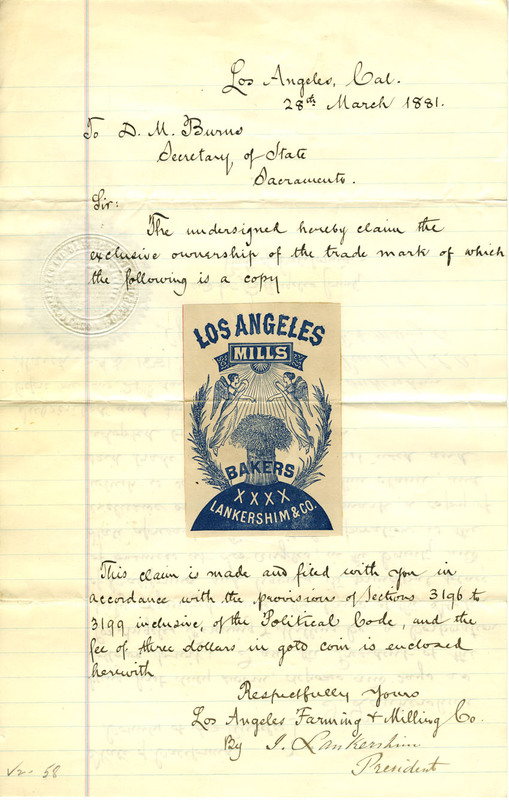 Los Angeles, Cal.
28th March 1881.
To D. M. Burns
Secretary of State
Sacramento.
Sir:
The undersigned hereby claim the
exclusive ownership of the trade mark of which
the following is a copy
LOS ANGELES
MILLS
BAKERS
XXXX
LANKERSHIM & CO.
This claim is made and filed with you in
accordance with the provisions of Sections 3196 to
3199 inclusive, of the Political Code, and the
fee of three dollars in gold coin is enclosed
herewith
Respectfully yours
Los Angeles Farming & Milling Co.
By I. Lankershim
President
58